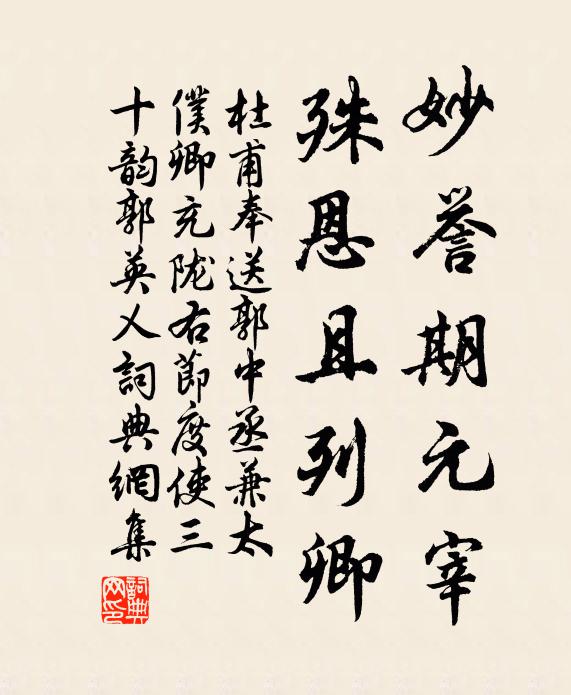 妙誉期元宰
殊恩且列卿
杜甫奉送郭中丞兼太
僕卿充陇右節度使三
十韵郭英乂詞典網集
詞典网印